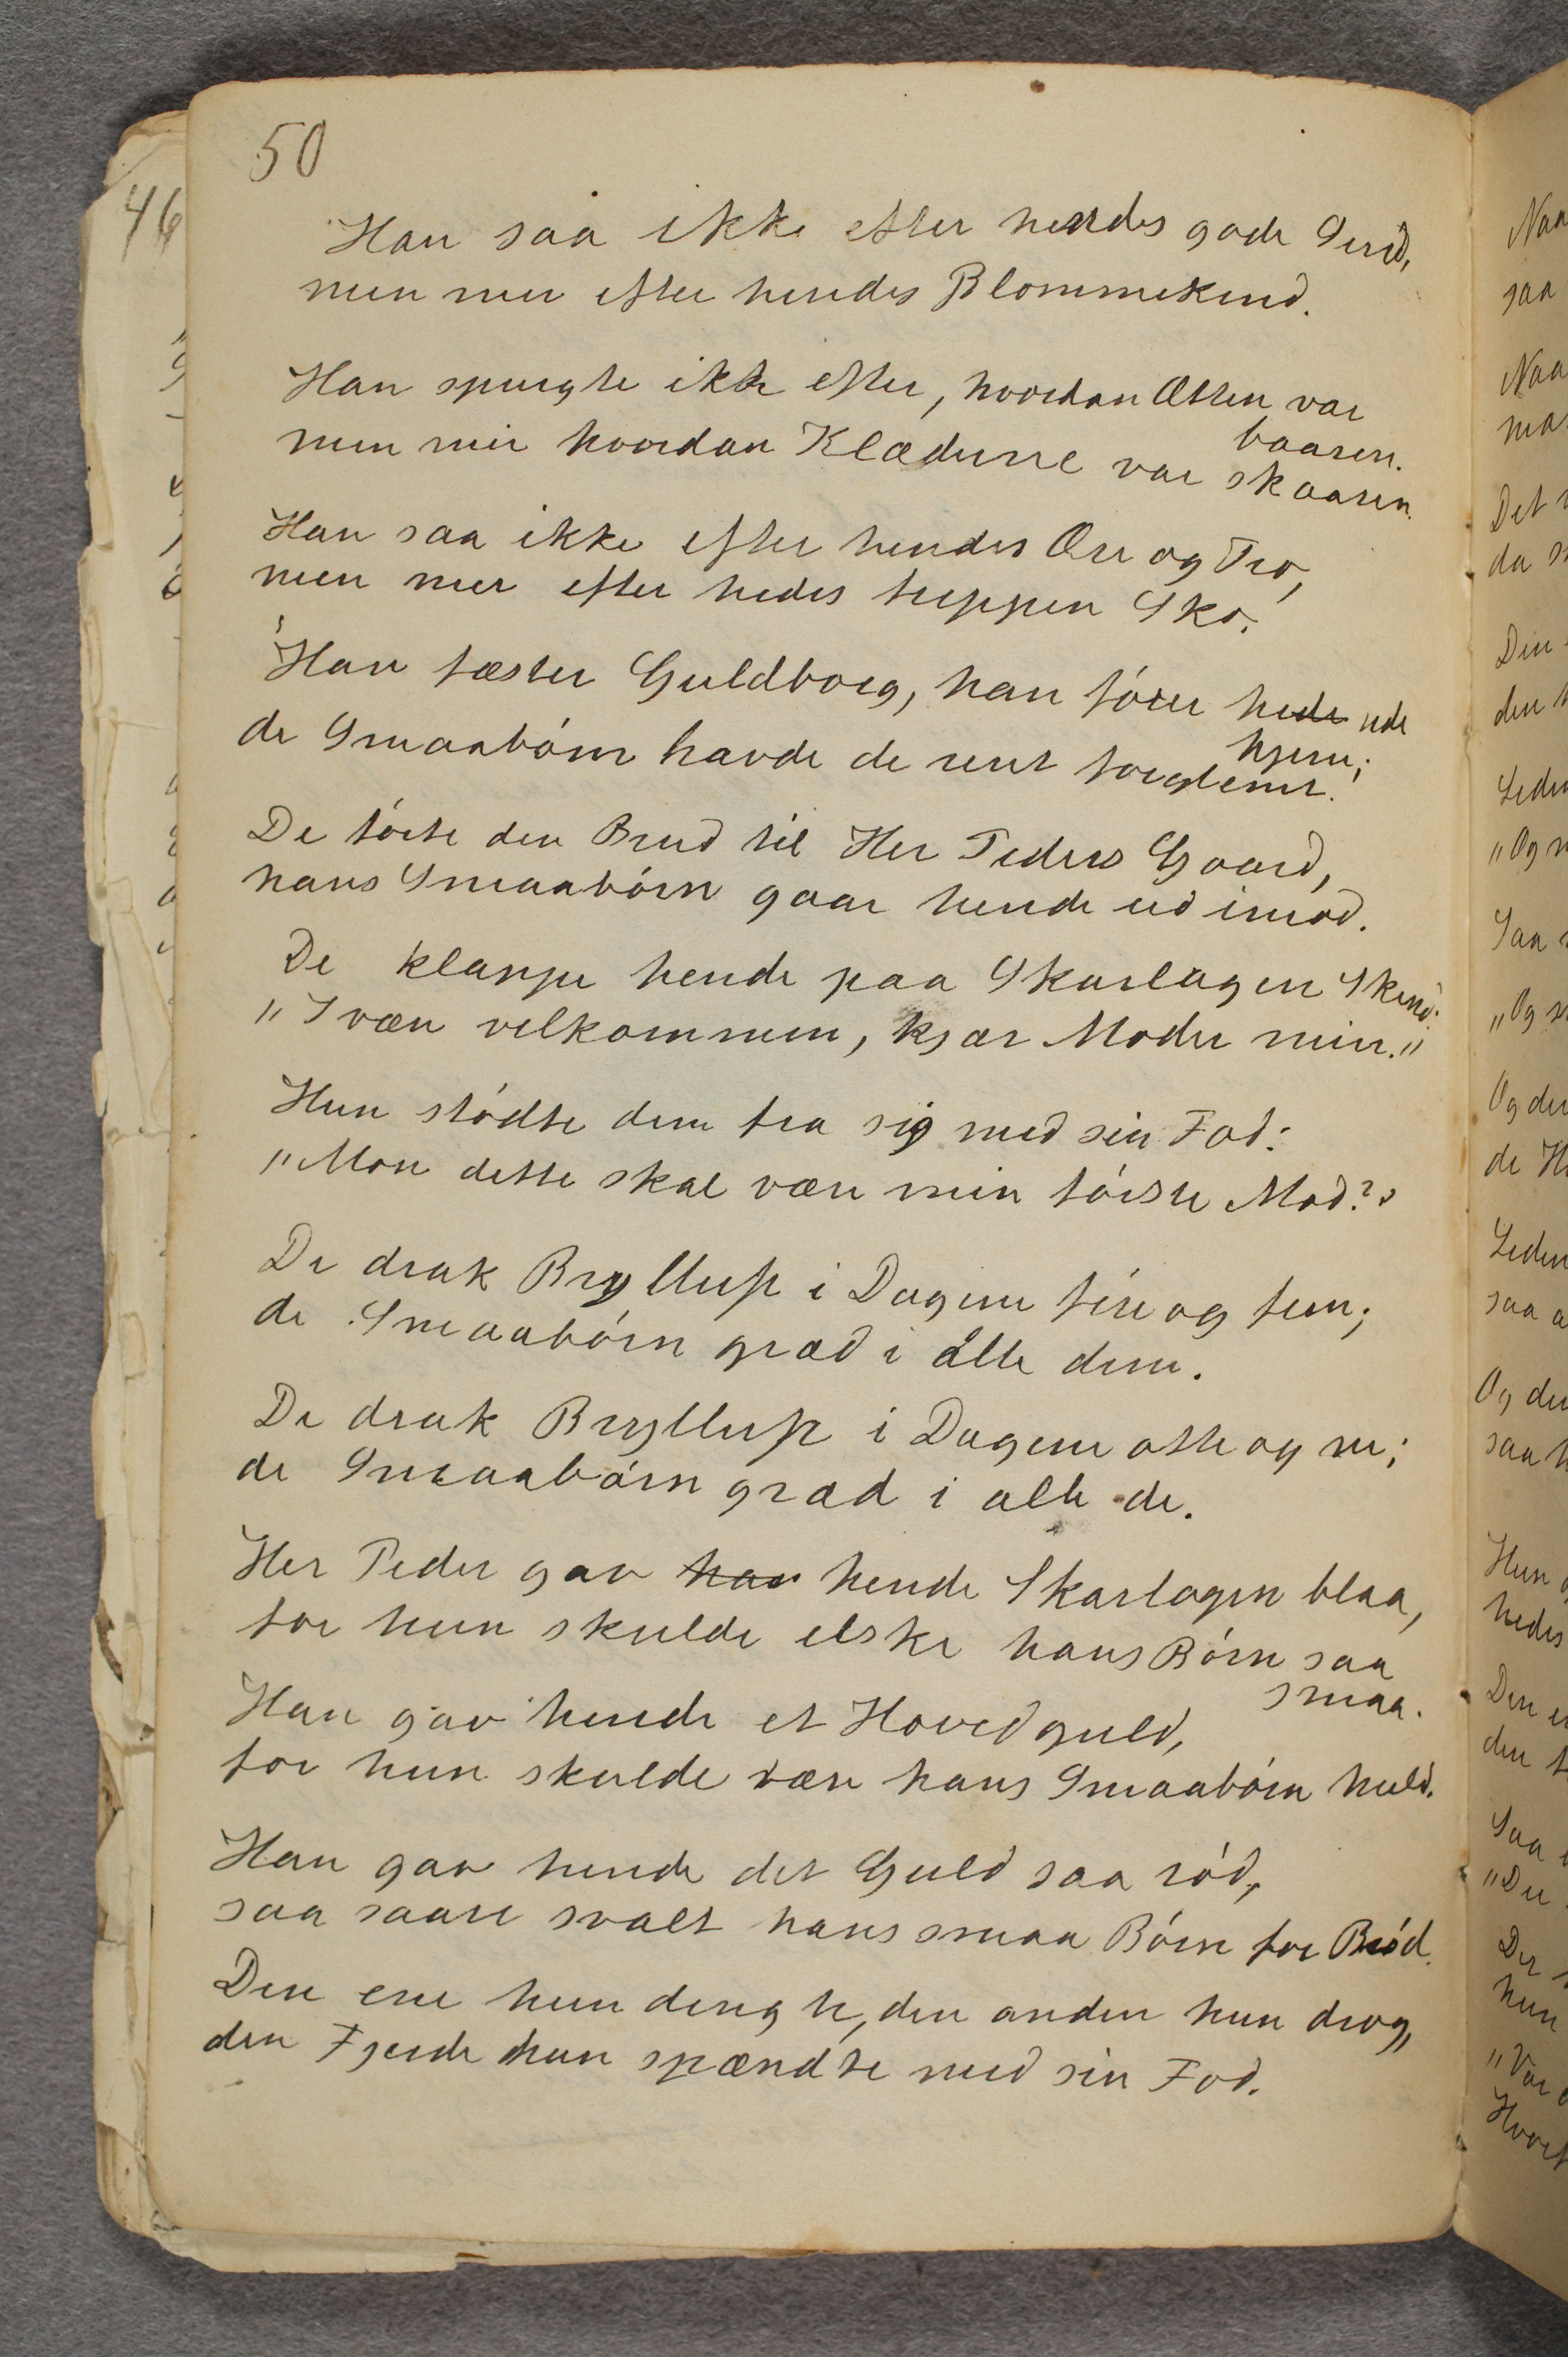 50
46
Han saa ikke efter hendes gode Sind,
men mer efter hendes Blommekind.
Han spurgte ikke efter, hvordan Ætten var
baaren.
men mer hvordan Klæderne var skaaren.
Han saa ikke efter hendes Ære og Tro,
men mer efter hedes treppen Sko.
Han fæster Guldborg, han fører hede ude
hjem;
de Smaabórn havde de rent forglemt.
De fórte den Brud til Her Peders Gaard,
hans Smaabórn gaar hende ud imod.
De klappe hende paa Skarlagen Skind:
"I være velkommen, kjær Moder min."
Hun stódte dem fra sig med sin Fod:
"Mon dette skal være min fórste Mod?"
De drak Bryllup i Dagene fire og fem;
de Smaabórn græd i alle dem.
De drak Bryllup i Dagene otte og ni;
de Smaabórn græd i alle de.
Her Peder gav han hende Skarlagen blaa,
for hun skulde elske hans Bórn saa
smaa.
Han gav hende et Hovedguld,
for hun skulde være hans Smaabórn huld.
Han gav hende det Guld saa ród,
saa saare svalt hans smaa Bórn for Bród.
Den ene hun dengte, den anden hun drog,
den Fjerde hun spændte med sin Fod.